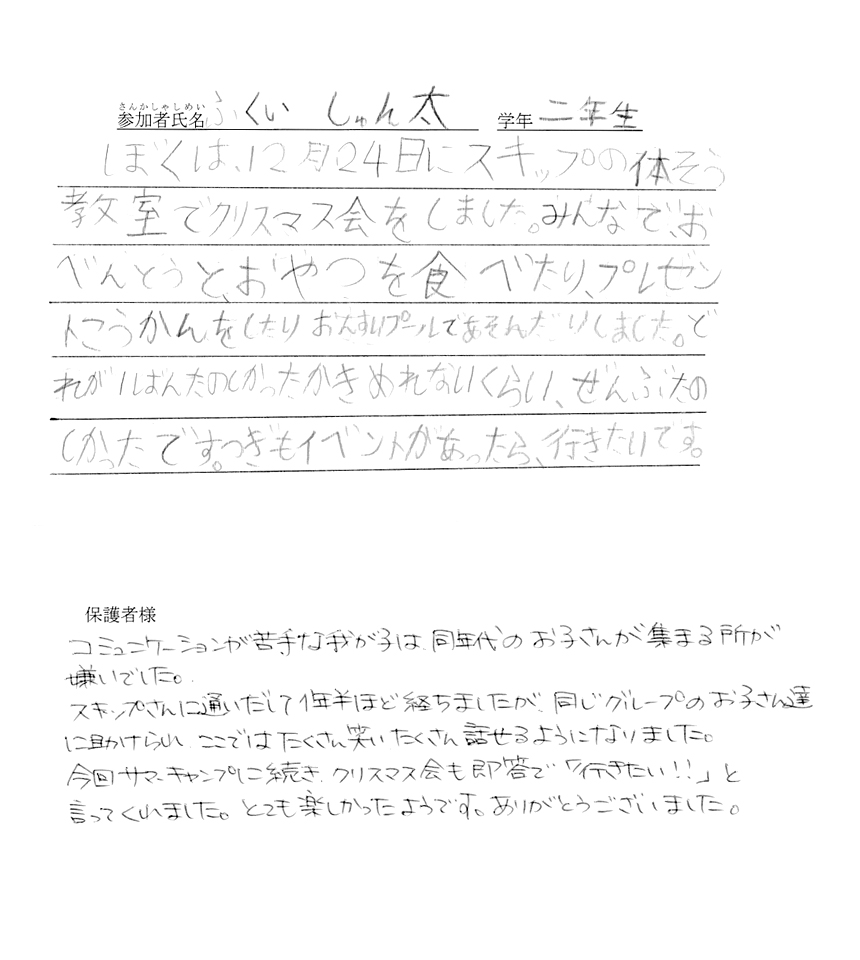 さんかしゃしめい
参加者氏名 ふくい しゅん太 学年 二年生
ぼくは、12月24日にスキップの体そう
教室でクリスマス会をしました。みんなで、お
べんとうと、おやつを食べたり、プレゼン
トこうかんをしたり おえすいプールであそんだりしました。ど
れがいばんたのしかったかきめれないくらい、ぜんぶたの
しかったです。つぎもイベントがあったら、行きたいです。
保護者様
コミュニケーションが苦手な我が子は、同年代のお子さんが集まる所が
嫌いでした。
スキップさんに通いだして1年半ほど経ちましたが、同じグループのお子さん達
に助けられ、ここではたくさん笑いたくさん話せるようになりました。
今回サマーキャンプに続き、クリスマス会も即答で「行きたい!!」と
言ってくれました。とても楽しかったようです。ありがとうございました。